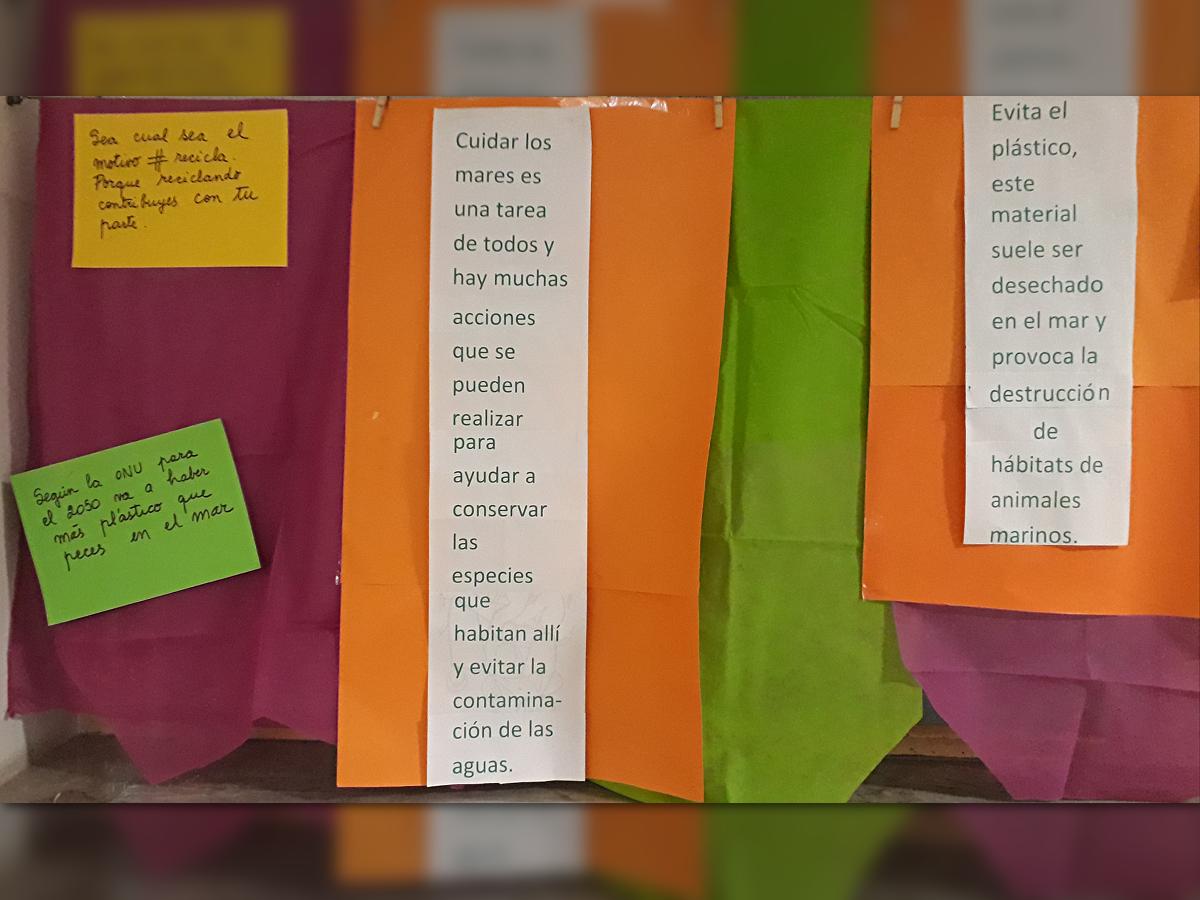 Sea cual sea el
motivo # recicla.
Porque reciclando
contribuyes con tu
parte.
Según la ONU para
el 2050 va a haber
más plástico que
peces en el mar
Cuidar los
mares es
una tarea
de todos y
hay muchas
acciones
que se
pueden
realizar
para
ayudar a
conservar
las
especies
que
habitan allí
y evitar la
contamina-
ción de las
aguas.
Evita el
plástico,
este
material
suele ser
desechado
en el mar y
provoca la
destrucción
de
hábitats de
animales
marinos.